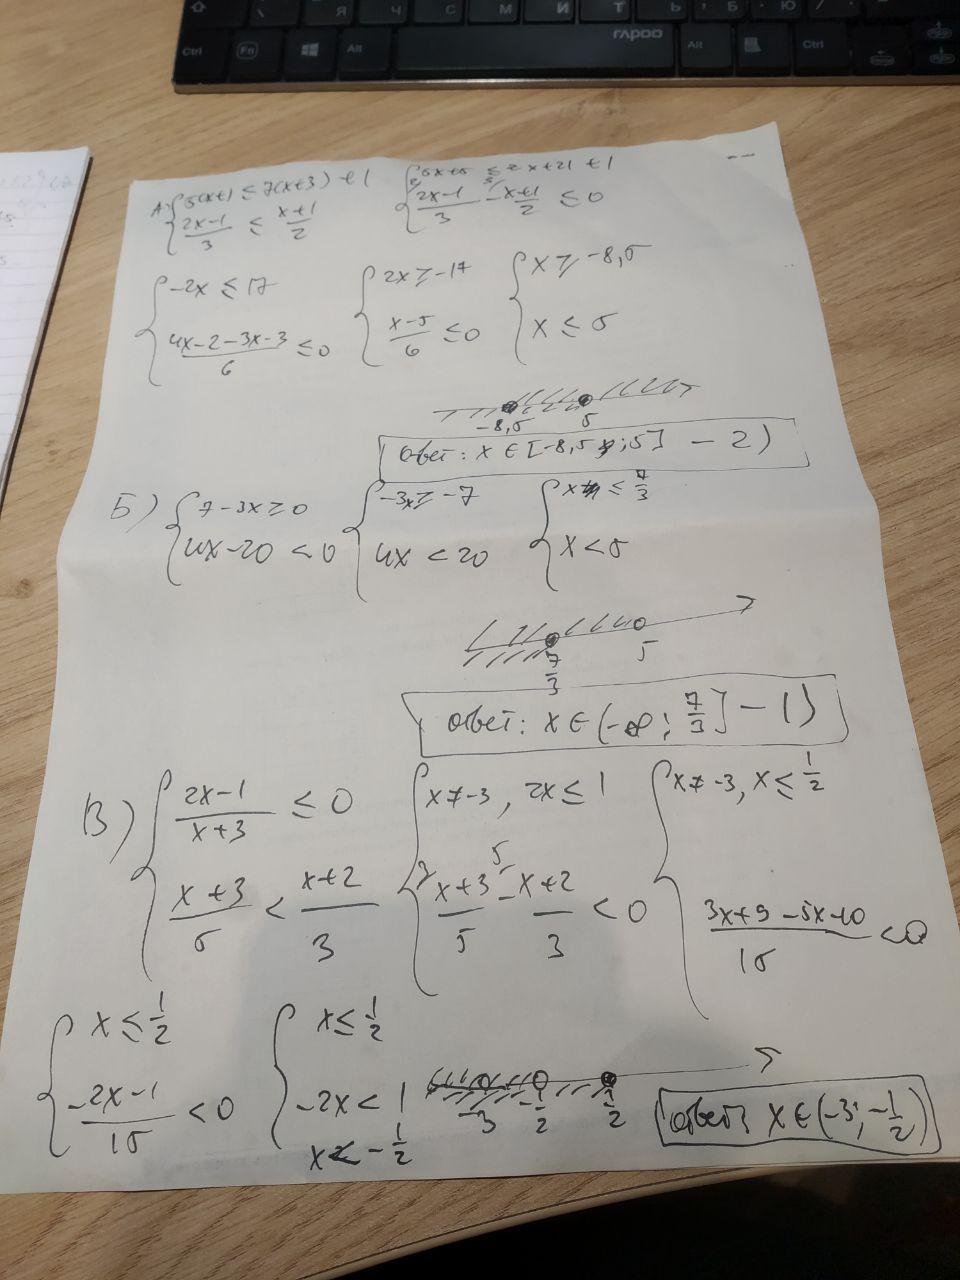 Ctrl Fn Alt rapoo Alt Ctrl
Я Ч С М И Т Ь Б Ю
А) {5(x+1) ≤ 7(x+3)+1
{2x-1/3 ≤ x+1/2
{5x+5 ≤ 7x+21+1
{2x-1/3 - x+1/2 ≤ 0
{-2x ≤ 17
{4x-2-3x-3/6 ≤ 0
{2x ≥ -17
{x-5/6 ≤ 0
{x ≥ -8,5
{x ≤ 5
-8,5 5
ответ: x ∈ [-8,5 ; 5] - 2)
Б) {7-3x ≥ 0
{4x-20 < 0
{-3x ≥ -7
{4x < 20
{x ≤ 7/3
{x < 5
7/3 5
ответ: x ∈ (-∞; 7/3] - 1)
В) {2x-1/x+3 ≤ 0
{x+3/5 < x+2/3
{x ≠ -3, 2x ≤ 1
{x+3/5 - x+2/3 < 0
{x ≠ -3, x ≤ 1/2
{3x+9-5x-10/15 < 0
{x ≤ 1/2
{-2x-1/15 < 0
{x ≤ 1/2
{-2x < 1
x < -1/2
-3 -1/2 1/2
ответ: x ∈ (-3; -1/2)